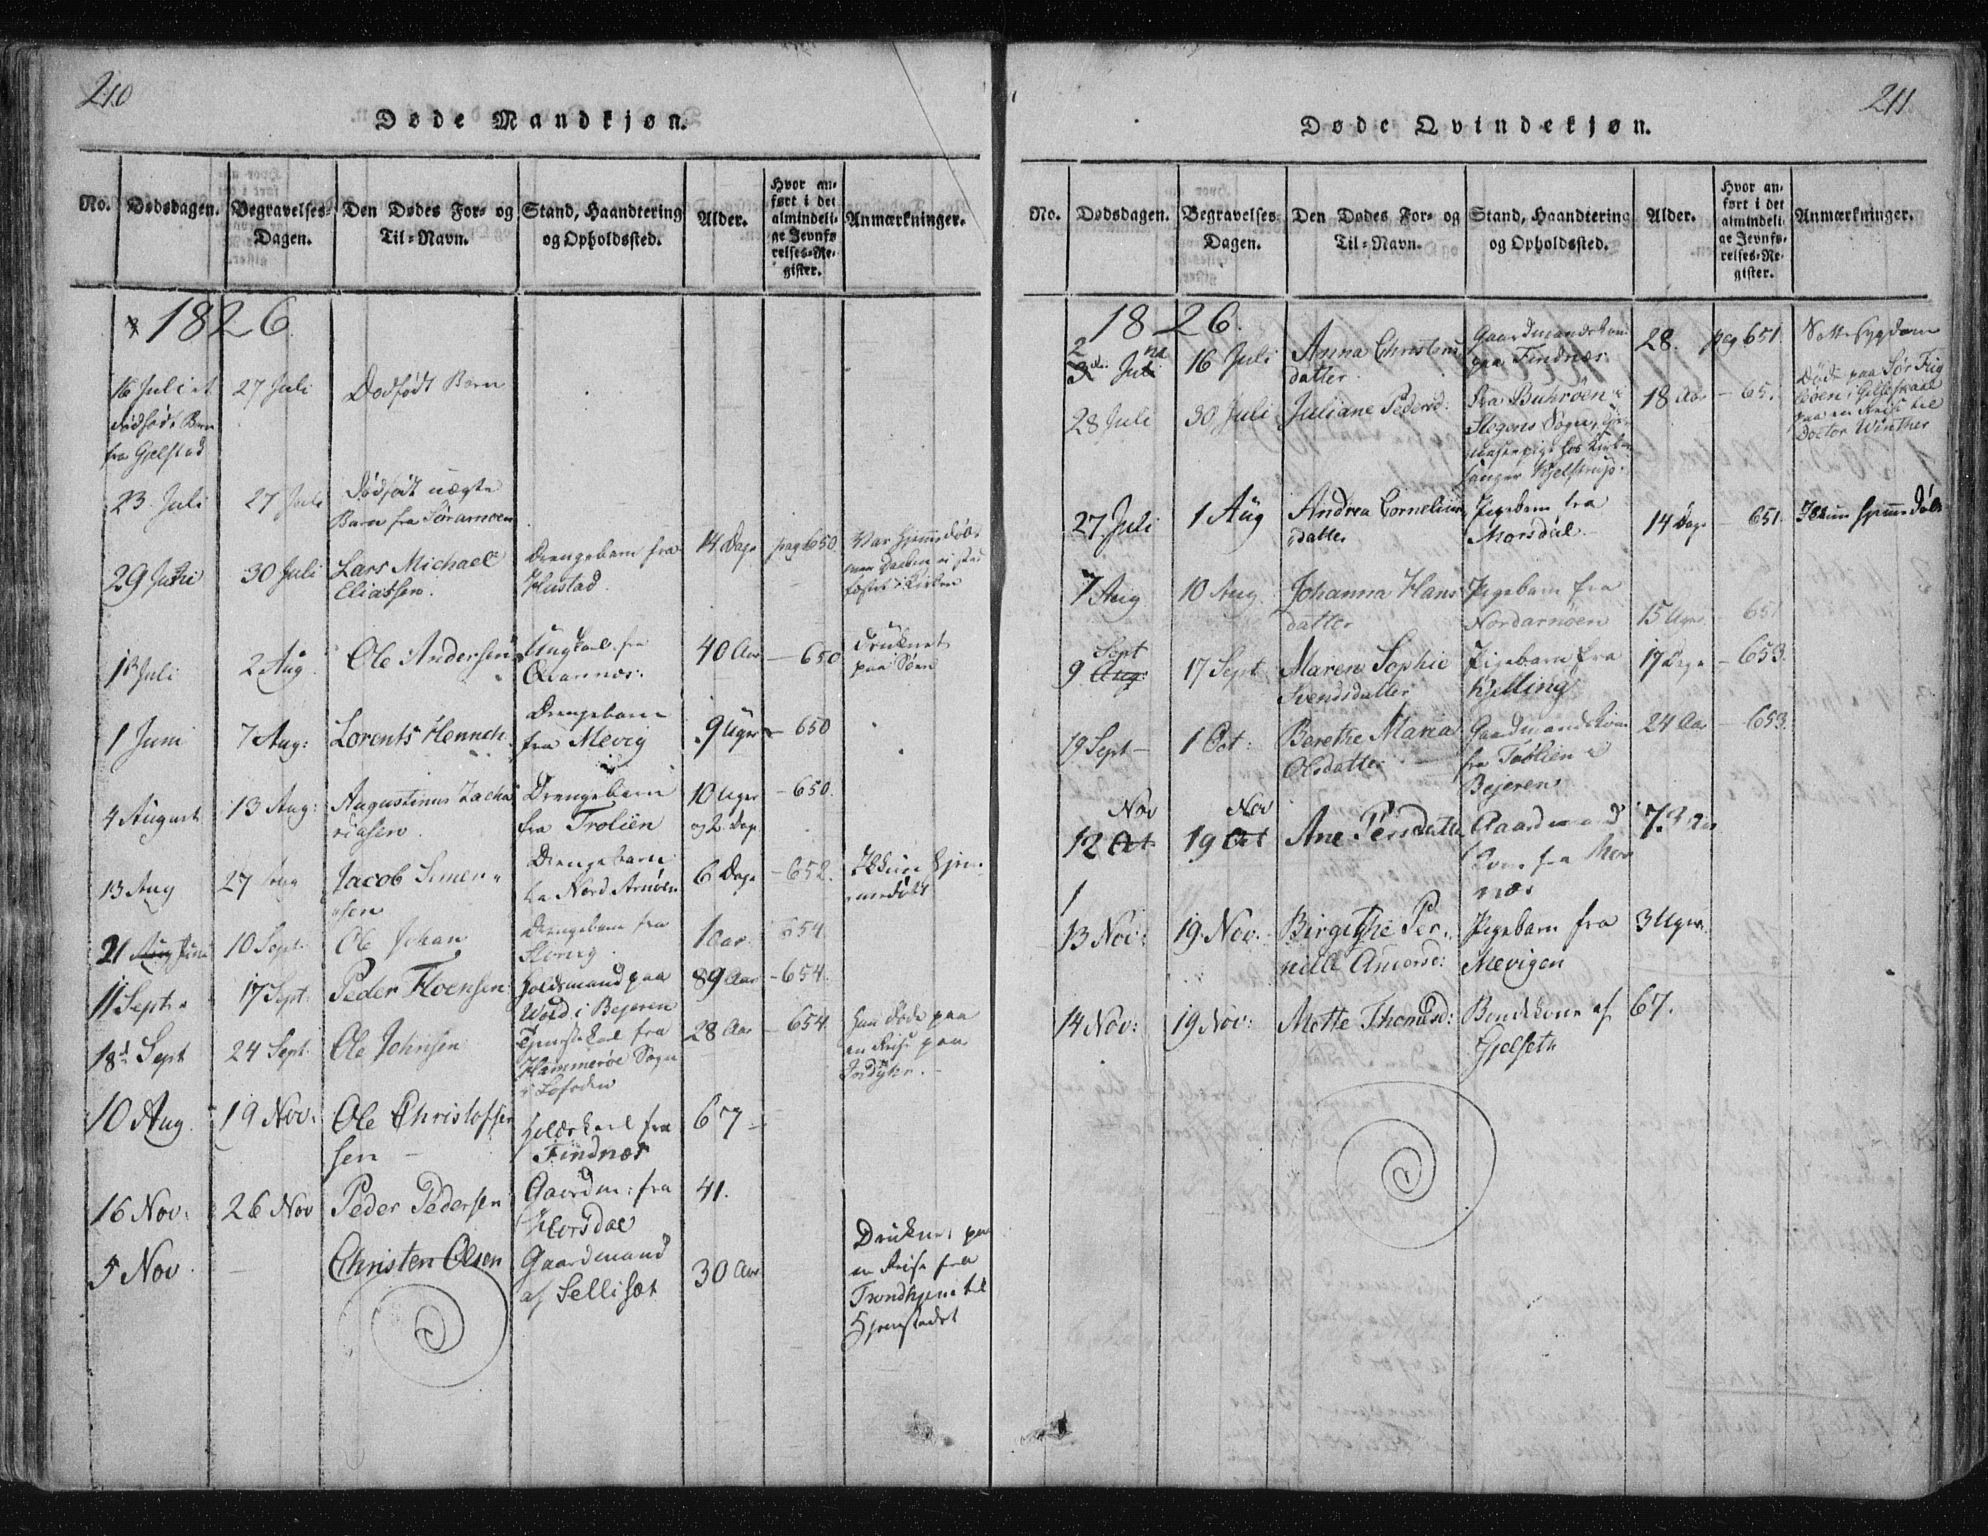 210
Døde Mandkjøn.
No.
Dødsdagen.
Begravelses-
Dagen.
Den Dødes For- og
Til-Navn.
Stand, Haandtering
og Opholdssted.
Alder.
Hvor an-
ført i det
almindeli-
ge Jevnfø-
relses-Re-
gister.
Anmærkninger.
1826
16 Juli et
dødfødt Barn
fra Gjelstad
27 Juli
Dødfødt Barn
23 Juli
27 Juli
Dødfødt uægte
Barn fra Sørarnøen
29 Juni
30 Juli
Lars Michael
Eliassen.
Drengebarn fra
Hustad.
14 Dage
pag 650.
Var hjemmedøbt
13 Juli
2 Aug
Ole Andersen
Ungkarl fra
Qvannæs.
40 Aar
— 650
Druknet
paa Søen
1 Juni
7 Aug:
Lorents Hennch.
Drengebarn
fra Mevig
9 Uger
— 650
4 August
13 Aug:
Augustinus Zacha
riasen.
Drengebarn
fra Trolien
10 Uger
og 2 Dage
— 650.
13 Aug
27 Aug
Jacob Simen
sen
Drengebarn
fra Nord Arnøen
6 Dage
— 652.
Ikkun hjem-
medøbt
21 Aug Juni
10 Sept
Ole Johan
Drengebarn fra
1 Aar
654.
11 Sept.
17 Sept:
Peder Floensen
Holdsmand paa
Wold i Bejeren
89 Aar
— 654.
18d Sept
24 Sept.
Ole Johnsen
Tjenstekarl fra
Hammerøe Sogn
i Lofoden
28 Aar
— 654
han døde paa
en Reise paa
10 Aug.
19 Nov:
Ole Christofer
sen —
fra
Findnæs
67
16 Nov:
26 Nov
Peder Pedersen
Gaardm: fra
Morsdal
41.
5 Nov
—
Christen Olsen
Gaardmand
af Sellisæt
30 Aar
Druknet paa
en Reise fra
Trondhjem til
Hjemstedet
211
Døde Qvindekjøn.
No.
Dødsdagen.
Begravelses-
Dagen.
Den Dødes For- og
Til-Navn.
Stand, Haandtering
og Opholdssted.
Alder.
Hvor an-
ført i det
almindeli-
ge Jevnfø-
relses-Re-
gister.
Anmærkninger.
1826.
2
Juli
16 Juli
Anna Christens
datter.
Gaardmandskone
paa Findnæs.
28.
pag 651.
28 Juli
30 Juli
Juliane Pedersd:
fra Buhrøen i
Stegens Sogn,
18 Aar
— 65.
Døde paa Sør Fug
løen i Gilleskaal
paa en Reise til
Doctor Winther
27 Juli
1 Aug
Andrea Cornelius
datter
Pigebarn fra
Morsdal.
14 Dage
— 651.
Ikkun hjemmedøbt
7 Aug
10 Aug
Johanna Hans
datter
Pigebarn fra
Nordarnøen
15 Uger
— 651
Sept
9 Aug:
17 Sept.
Maren Sophie
Svendsdatter
Pigebarn fra
Kjelling
17 Dage
— 653.
19 Sept —
1 Oct:
Berethe Maria
Olsdatter —
Gaardmandskone
fra Tollien i
Bejeren
24 Aar
— 653.
Nov
12 Oct
Nov
19 Oct
Ane Persdatter
Gaardmands
kone fra Mor
næs
73 Aar
13 Nov:
19 Nov.
Birgithe Per-
nille Andersd:
Pigebarn fra
Mevigen
3 Uger.
14 Nov:
19 Nov:
Mette Thomasd:
Bondekone af
Gjelseth
67.